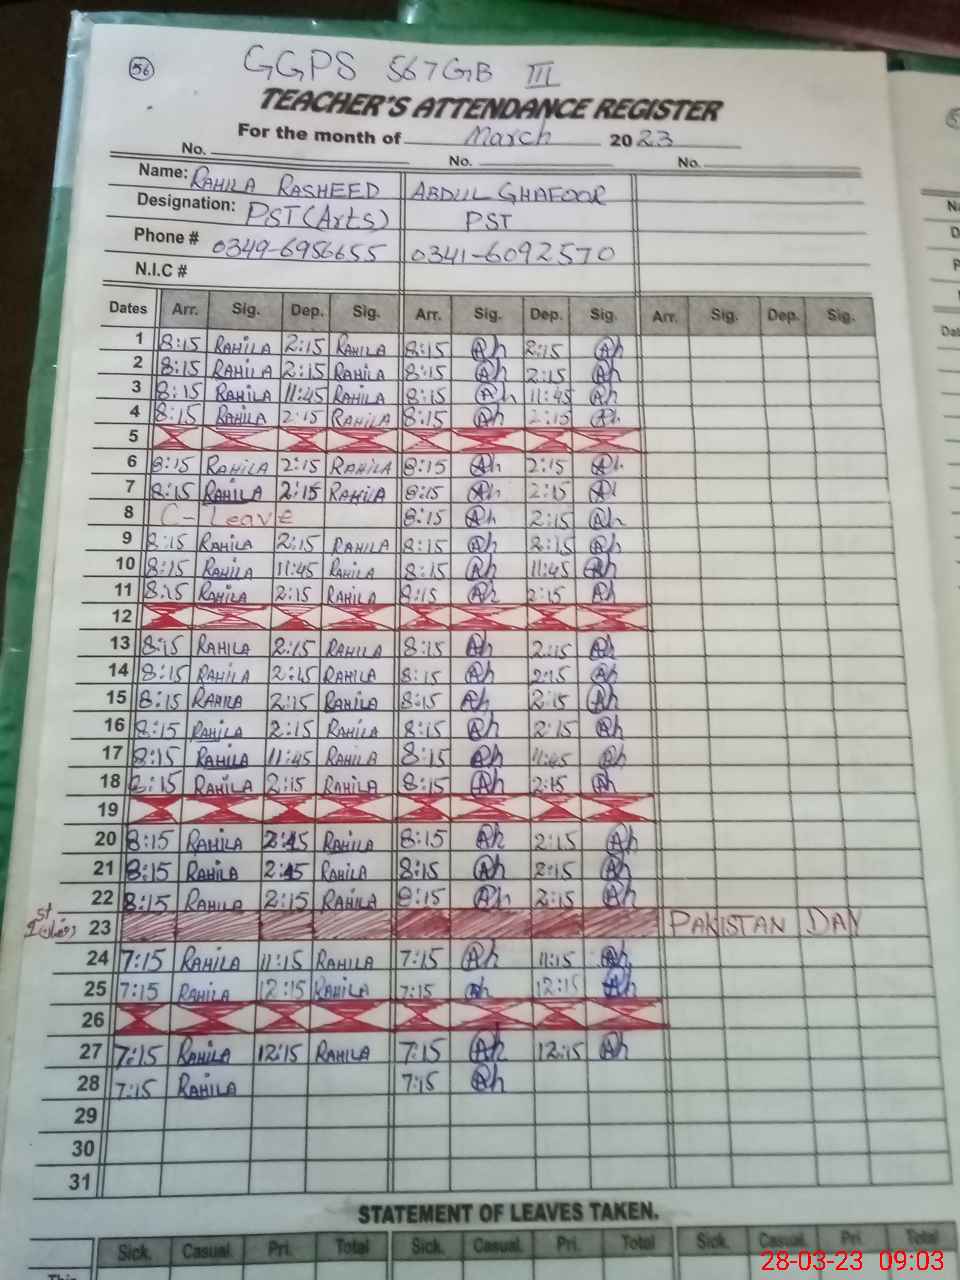 56
GGPS 567GB III
TEACHER'S ATTENDANCE REGISTER
For the month of March 2023
No. No. No.
Name: RAHILA RASHEED ABDUL GHAFOOR
Designation: PST (Arts) PST
Phone # 0349-6956655 0341-6092570
N.I.C #
Dates Arr. Sig. Dep. Sig. Arr. Sig. Dep. Sig. Arr. Sig. Dep. Sig.
1 8:15 RAHILA 2:15 RAHILA 8:15 Ah 2:15 Ah
2 8:15 RAHILA 2:15 RAHILA 8:15 Ah 2:15 Ah
3 8:15 RAHILA 11:45 RAHILA 8:15 Ah 11:45 Ah
4 8:15 RAHILA 2:15 RAHILA 8:15 Ah 2:15 Ah
5
6 8:15 RAHILA 2:15 RAHILA 8:15 Ah 2:15 Ah
7 8:15 RAHILA 2:15 RAHILA 8:15 Ah 2:15 Ah
8 C-Leave 8:15 Ah 2:15 Ah
9 8:15 RAHILA 2:15 RAHILA 8:15 Ah 2:15 Ah
10 8:15 RAHILA 11:45 RAHILA 8:15 Ah 11:45 Ah
11 8:15 RAHILA 2:15 RAHILA 8:15 Ah 2:15 Ah
12
13 8:15 RAHILA 2:15 RAHILA 8:15 Ah 2:15 Ah
14 8:15 RAHILA 2:15 RAHILA 8:15 Ah 2:15 Ah
15 8:15 RAHILA 2:15 RAHILA 8:15 Ah 2:15 Ah
16 8:15 RAHILA 2:15 RAHILA 8:15 Ah 2:15 Ah
17 8:15 RAHILA 11:45 RAHILA 8:15 Ah 11:45 Ah
18 8:15 RAHILA 2:15 RAHILA 8:15 Ah 2:15 Ah
19
20 8:15 RAHILA 2:15 RAHILA 8:15 Ah 2:15 Ah
21 8:15 RAHILA 2:15 RAHILA 8:15 Ah 2:15 Ah
22 8:15 RAHILA 2:15 RAHILA 8:15 Ah 2:15 Ah
1st رمضان 23 PAKISTAN DAY
24 7:15 RAHILA 11:15 RAHILA 7:15 Ah 11:15 Ah
25 7:15 RAHILA 12:15 RAHILA 7:15 Ah 12:15 Ah
26
27 7:15 RAHILA 12:15 RAHILA 7:15 Ah 12:15 Ah
28 7:15 RAHILA 7:15 Ah
29
30
31
STATEMENT OF LEAVES TAKEN.
Sick. Casual. Pri. Total Sick. Casual. Pri. Total Sick. Casual. Pri. Total
This
28-03-23 09:03